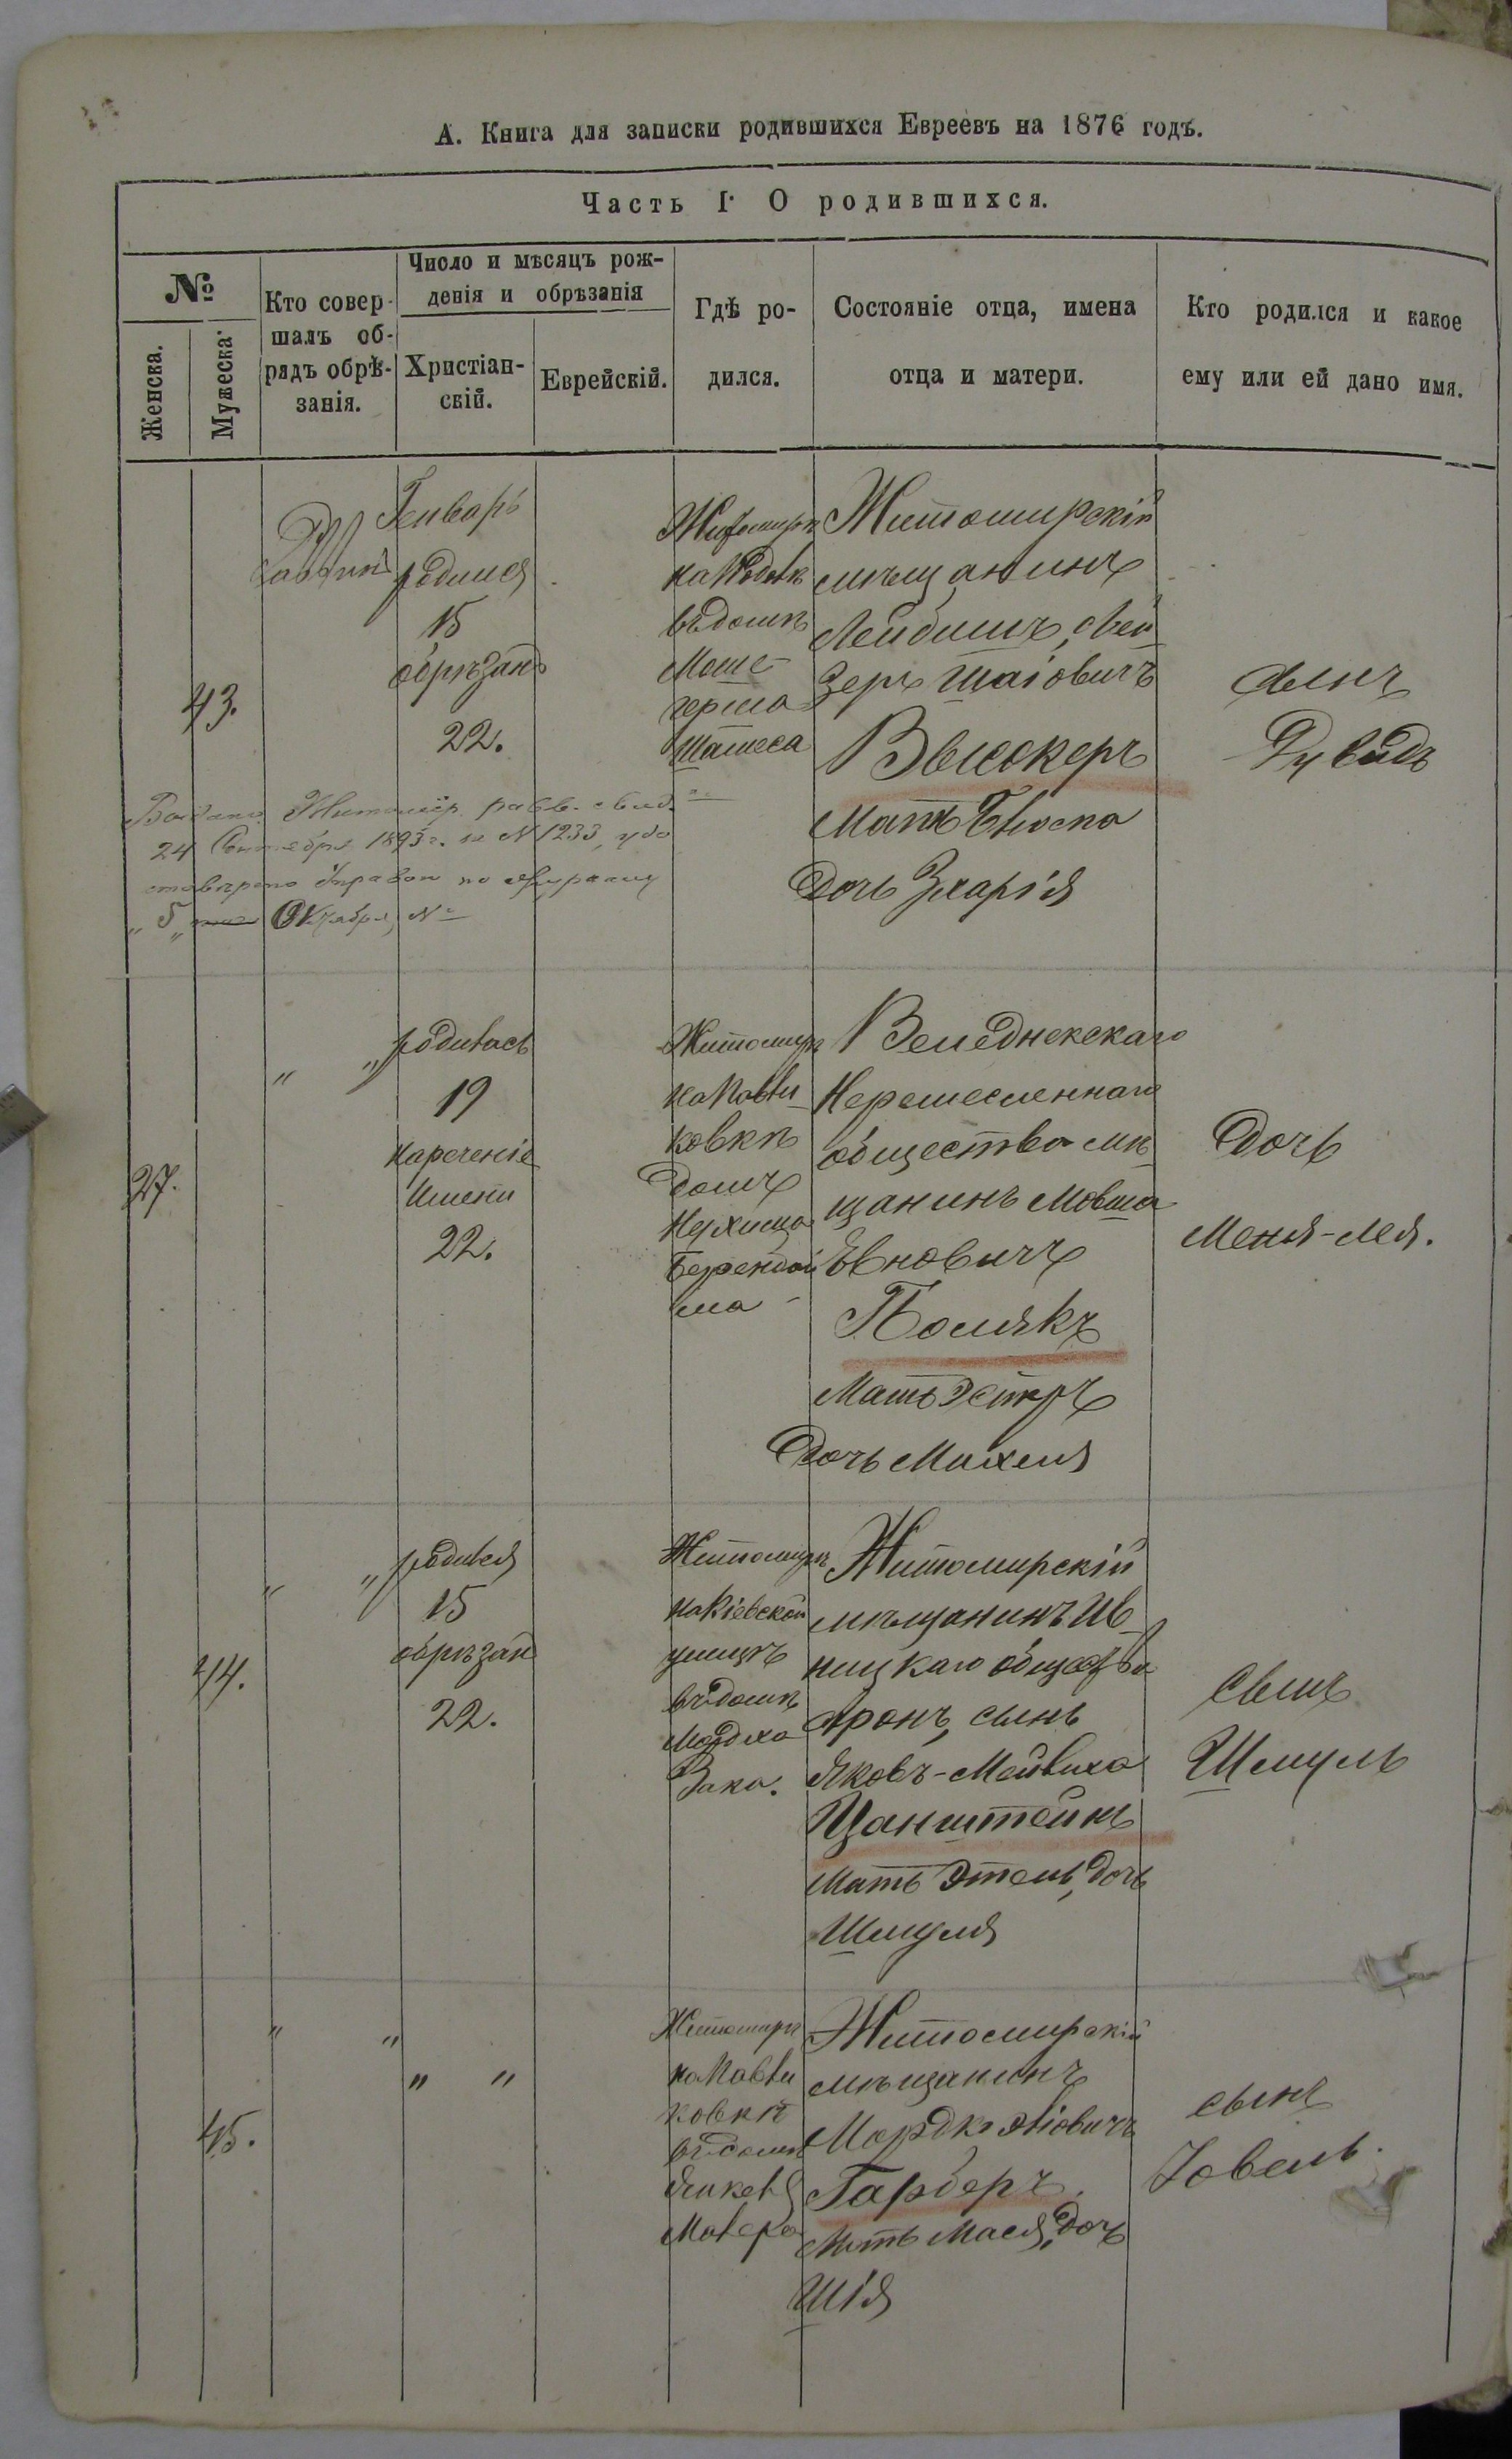 А. Книга для записки родившихся Евреевъ на 1876 годъ.
Часть I. О родившихся.
№
Женска.
Мужеска.
Кто совер-
шалъ об-
рядъ обрѣ-
занія.
Число и мѣсяцъ рож-
денія и обрѣзанія
Христіан-
скій.
Еврейскій.
Гдѣ ро-
дился.
Состояніе отца, имена
отца и матери.
Кто родился и какое
ему или ей дано имя.
43.
Генварь
родился
15
обрѣзанъ
22.
Житомиръ
въ домѣ
Мошк
Житомирскій
мѣщанинъ
Лейбишъ, Лей
зеръ Шаіовичъ
Высокеръ
Мать
Дочь Зхарія
сынъ
Дувидъ
Житомір. равв. свид.
24 Сентября 1893 г. за № 1233, удо
стовѣрено Управою по журналу
"5" Октября №
27.
" "
родилась
19
нареченіе
имени
22.
Житомиръ
на Павли
ковкѣ
домъ
Нухима
Велednикскаго
общества мѣ
щанинъ Мовша
Полякъ
Мать Эстеръ
Дочь Михеля
Дочь
Меня-Лея.
44.
" "
родился
15
обрѣзан
22.
Житомиръ
на Кіевской
улицѣ
въ домѣ
Мордка
Зака.
Житомирскій
мѣщанинъ Ив
ницкаго общества
Аронъ, сынъ
Яковъ-Мейлиха
Цанштейнъ
Мать Этель, дочь
Шмуля
Сынъ
Шмуль
45.
" "
" "
Житомиръ
на Павли
ковкѣ
въ домѣ
Янкеля
Житомирскій
мѣщанинъ
Мордко
Гарберъ.
Мать Мася, дочь
Шія
сынъ
Іовель.